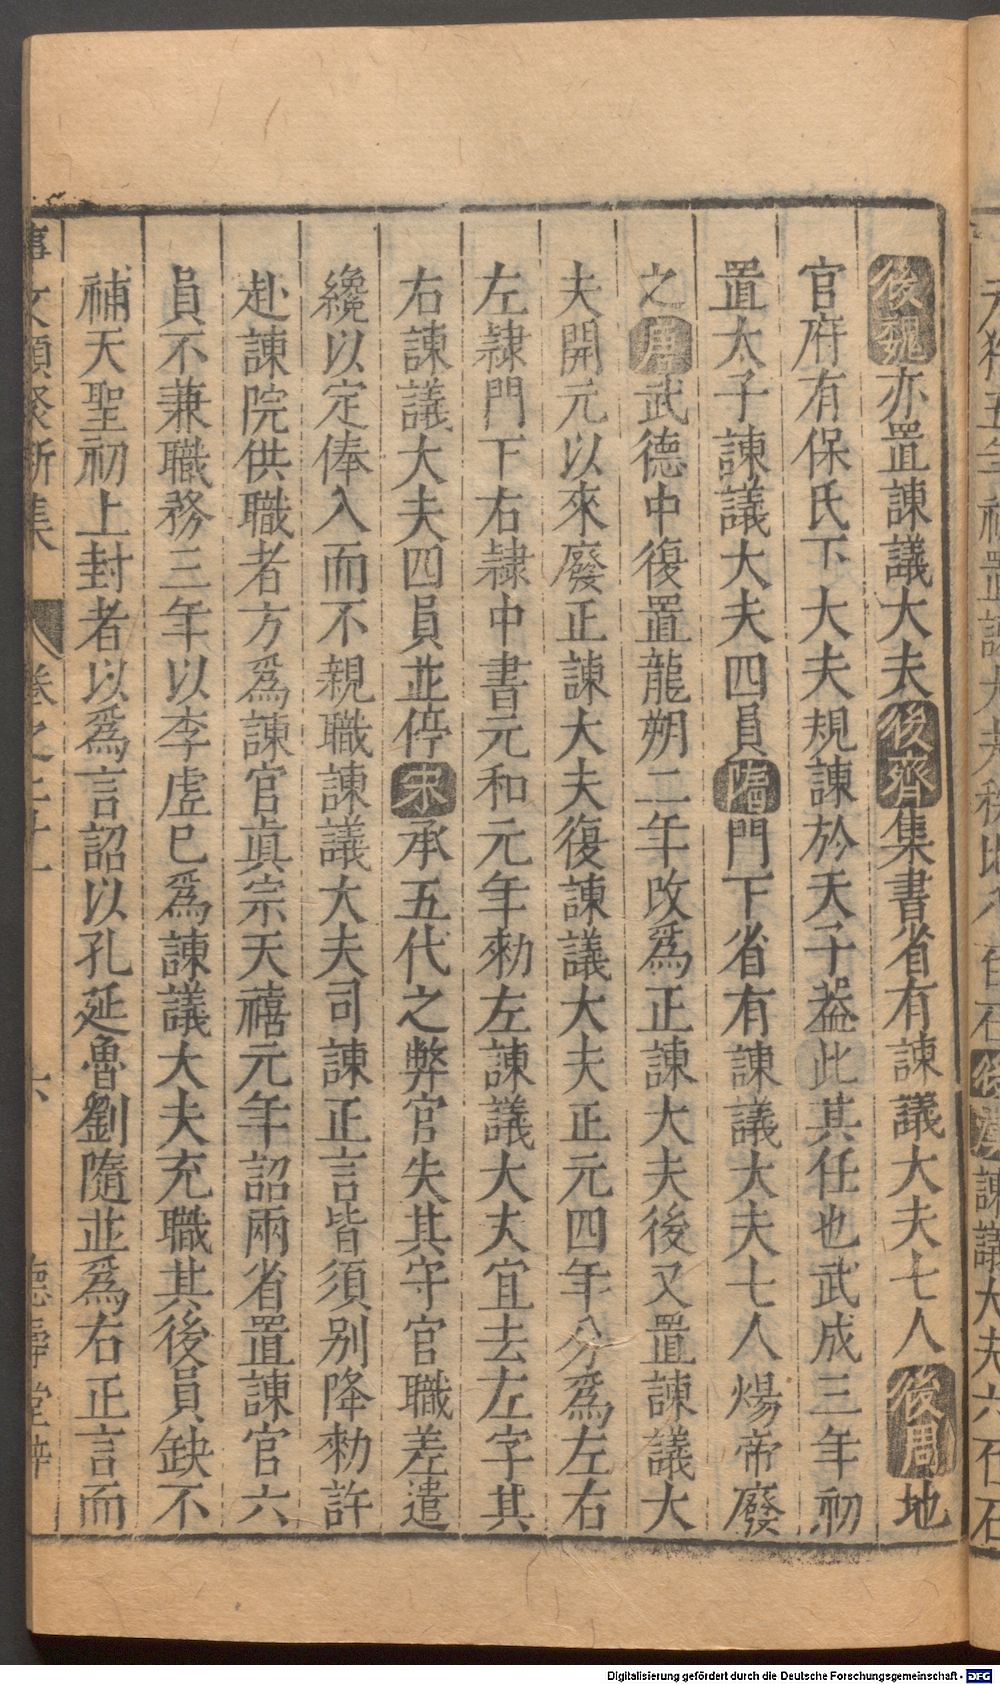 後魏亦置諫議大夫後齊集書省有諫議大夫七人後周地
官府有保氏下大夫規諫於天子葢此其任也武成三年初
置太子諫議大夫四員隋門下省有諫議大夫七人煬帝廢
之唐武德中復置龍朔二年改爲正諫大夫後又置諫議大
夫開元以來廢正諫大夫復諫議大夫正元四年分爲左右
左隸門下右隸中書元和元年勑左諫議大夫宜去左字其
右諫議大夫四員並停宋承五代之弊官失其守官職差遣
纔以定俸入而不親職諫議大夫司諫正言皆須别降勑許
赴諫院供職者方爲諫官真宗天禧元年詔兩省置諫官六
員不兼職務三年以李虛已爲諫議大夫充職其後員缺不
補天聖初上封者以爲言詔以孔延魯劉隨並爲右正言而
事文類聚新集 卷之二十一 六 德壽堂梓
Digitalisierung gefördert durch die Deutsche Forschungsgemeinschaft - DFG